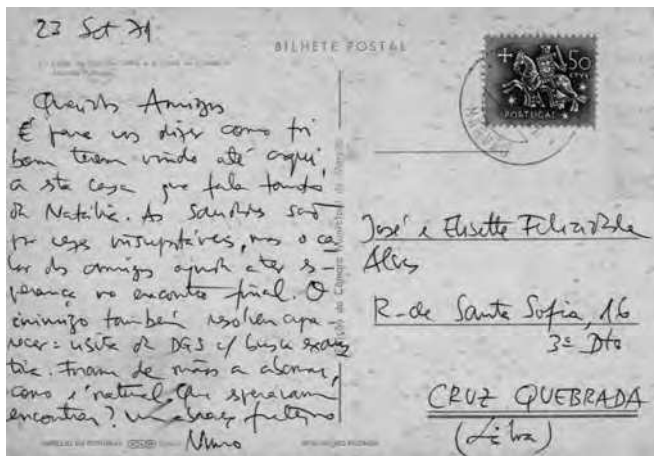 23 Set 71
BILHETE POSTAL
50
PORTUGAL
Queridos Amigos
É para vos dizer como foi
bom terem vindo até aqui,
a esta casa que fala tanto
da Natália. As saudades são
por vezes insuportáveis, mas o ca-
lor dos amigos ajuda a ter es-
perança no encontro final. O
inimigo também resolveu apa-
recer: visita da DGS c/ busca exaus
tiva. Foram de mãos a abanar,
como é natural. Que esperavam
encontrar? Um abraço fraterno
Nuno
José e Elisette
Alves
R. de Santa Sofia, 16
3º Dto
CRUZ QUEBRADA
(Lisboa)